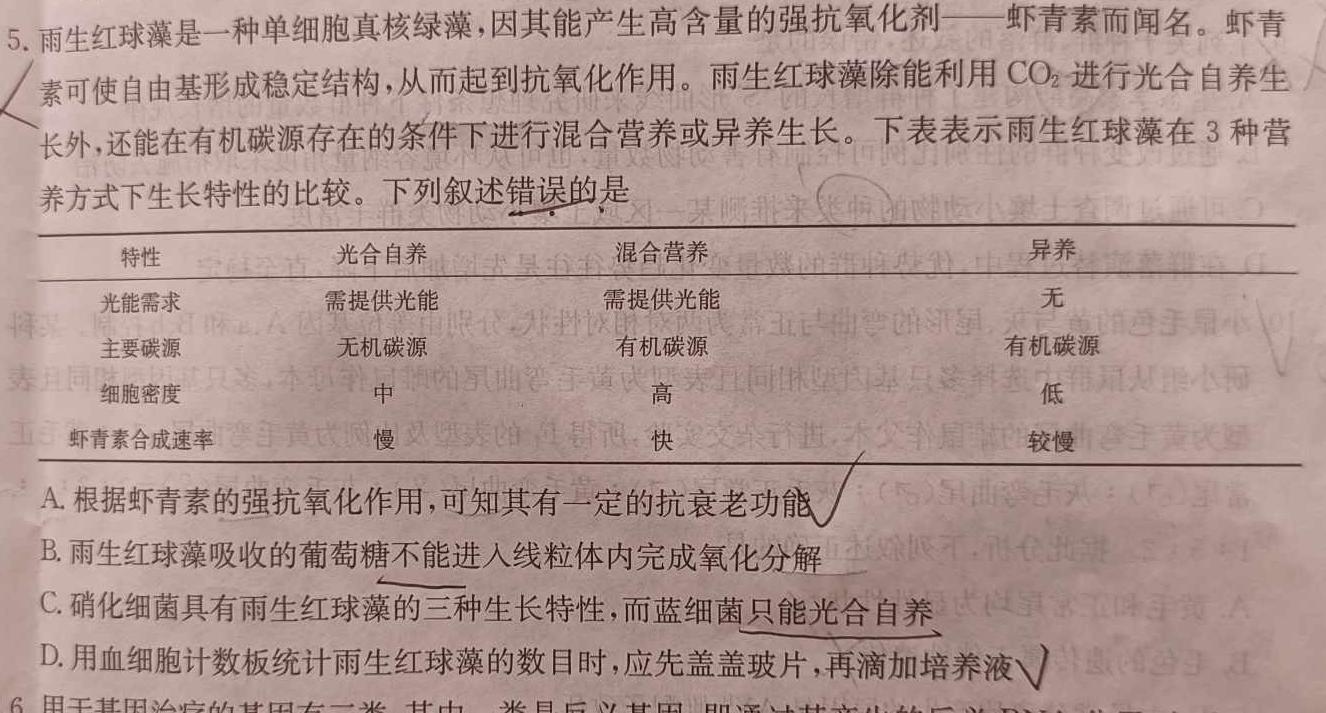 5. 雨生红球藻是一种单细胞真核绿藻,因其能产生高含量的强抗氧化剂——虾青素而闻名。虾青
素可使自由基形成稳定结构,从而起到抗氧化作用。雨生红球藻除能利用 CO₂ 进行光合自养生
长外,还能在有机碳源存在的条件下进行混合营养或异养生长。下表表示雨生红球藻在 3 种营
养方式下生长特性的比较。下列叙述错误的是
特性 光合自养 混合营养 异养
光能需求 需提供光能 需提供光能 无
主要碳源 无机碳源 有机碳源 有机碳源
细胞密度 中 高 低
虾青素合成速率 慢 快 较慢
A. 根据虾青素的强抗氧化作用,可知其有一定的抗衰老功能
B. 雨生红球藻吸收的葡萄糖不能进入线粒体内完成氧化分解
C. 硝化细菌具有雨生红球藻的三种生长特性,而蓝细菌只能光合自养
D. 用血细胞计数板统计雨生红球藻的数目时,应先盖盖玻片,再滴加培养液
6. 用于基因治疗的基因有三类,其中一类是反义基因,即通过其产生的